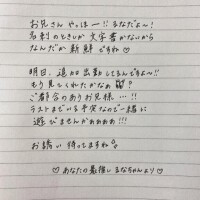 お兄さん やっほー!! るなだよ〜!
名刺のときしか 文字書かないから
なんだか 新鮮 ですね♡
明日、追加出勤してるんですよ〜!!
もり見てくれたかなぁ
ご都合のありお兄様…!!
ラストまでいる予定なので一緒に
遊びませんかぁぁぁぁ!!!
お誘い 待ってますね
♡ あなたの最推し るなちゃんより ♡